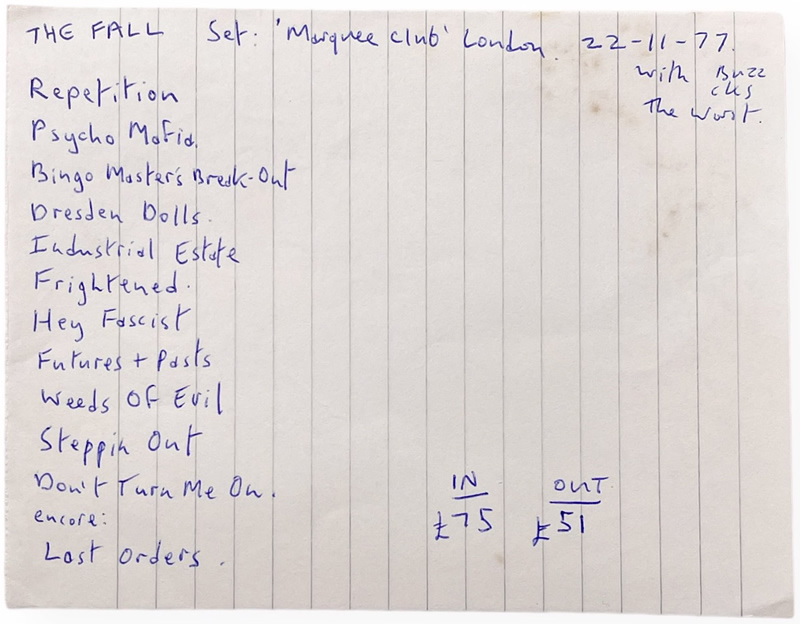 THE FALL Set: 'Marquee Club' London. 22-11-77.
with Buzz
cks
The Worst.
Repetition
Psycho Mafia.
Bingo Master's Break-Out
Dresden Dolls.
Industrial Estate
Frightened.
Hey Fascist
Futures + Pasts
Weeds Of Evil
Steppin Out
Don't Turn Me On.
encore:
Last Orders.
IN OUT
£75 £51